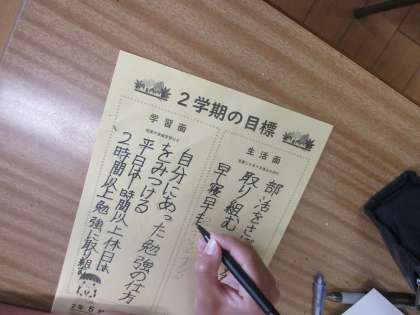 ２学期の目標
生活面
部活をさ
取り組む
早寝早
学習面
自分にあった勉強の仕方
をみつける
平日は1時間以上休日は
2時間以上勉強に取り組